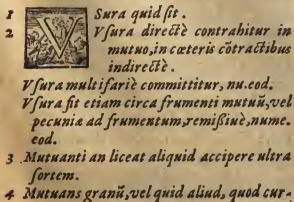 1 Vsura quid sit.
2 Vsura directè contrahitur in
mutuo, in cœteris cōtractibus
indirectè.
Vsura multifariè committitur, nu. eod.
Vsura fit etiam circa frumenti mutuū, vel
pecuniæ ad frumentum, remissiuè, nume.
eod.
3 Mutuanti an liceat aliquid accipere ultra
sortem.
4 Mutuans granū, vel quid aliud, quod cur-